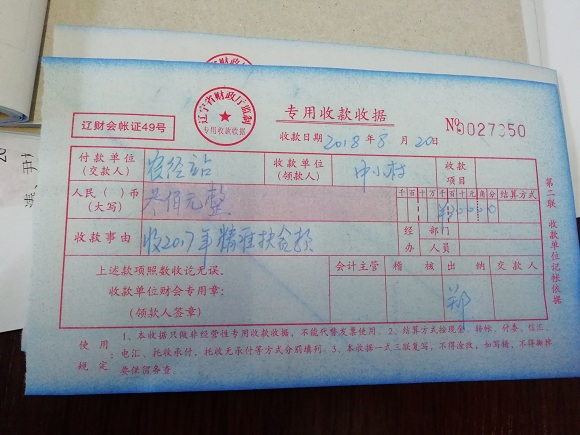 辽宁省财政厅监制
专用收款收据
专用收款收据
辽财会帐证49号
收款日期 2018年8月20日
№0027350
付款单位
(交款人)
农经站
收款单位
(领款人)
中小村
收款
项目
人民( )币
(大写)
叁佰元整
千百十万千百十元角分
结算方式
¥30000
收款事由
收2017年精准扶贫款
经 部门
办 人员
上述款项照数收讫无误。
收款单位财会专用章:
(领款人签章)
会计主管
稽核
出纳
交款人
郑
第二联 收款单位记帐依据
使用规定:
1、本收据只做非经营性专用收款收据,不能代替发票使用。2、结算方式按现金、转帐、付委、信汇、
电汇、托收承付、托收无承付等方式分别填列。3、本收据一式三联复写,不得涂改,如写错,不得撕毁
要保留备查。